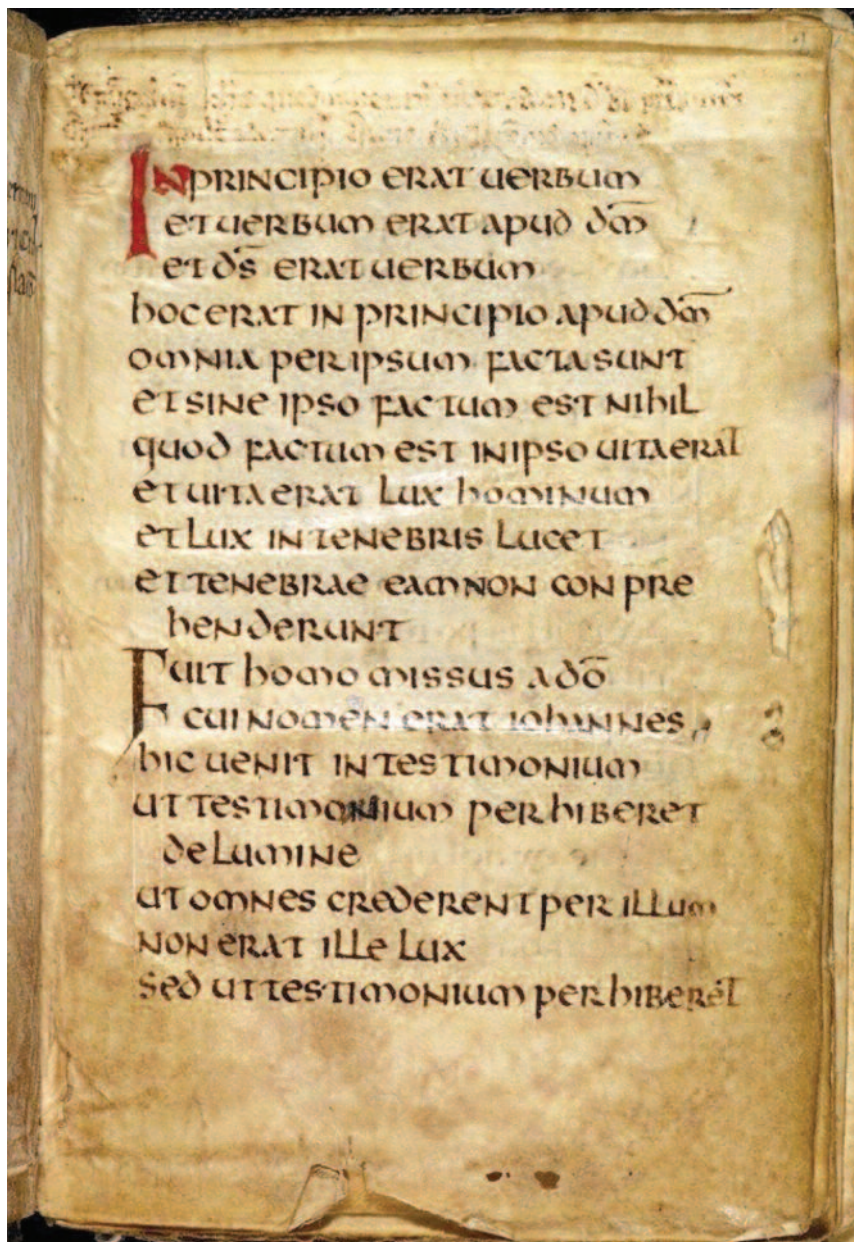 IN PRINCIPIO ERAT UERBUM
ET UERBUM ERAT APUD D̄M
ET D̄S ERAT UERBUM
HOC ERAT IN PRINCIPIO APUD D̄M
OMNIA PER IPSUM FACTA SUNT
ET SINE IPSO FACTUM EST NIHIL
QUOD FACTUM EST IN IPSO UITA ERAT
ET UITA ERAT LUX HOMINUM
ET LUX IN TENEBRIS LUCET
ET TENEBRAE EAM NON CONPRE
HENDERUNT
FUIT HOMO MISSUS A D̄O
CUI NOMEN ERAT IOHANNES
HIC UENIT IN TESTIMONIUM
UT TESTIMONIUM PERHIBERET
DE LUMINE
UT OMNES CREDERENT PER ILLUM
NON ERAT ILLE LUX
SED UT TESTIMONIUM PERHIBERET